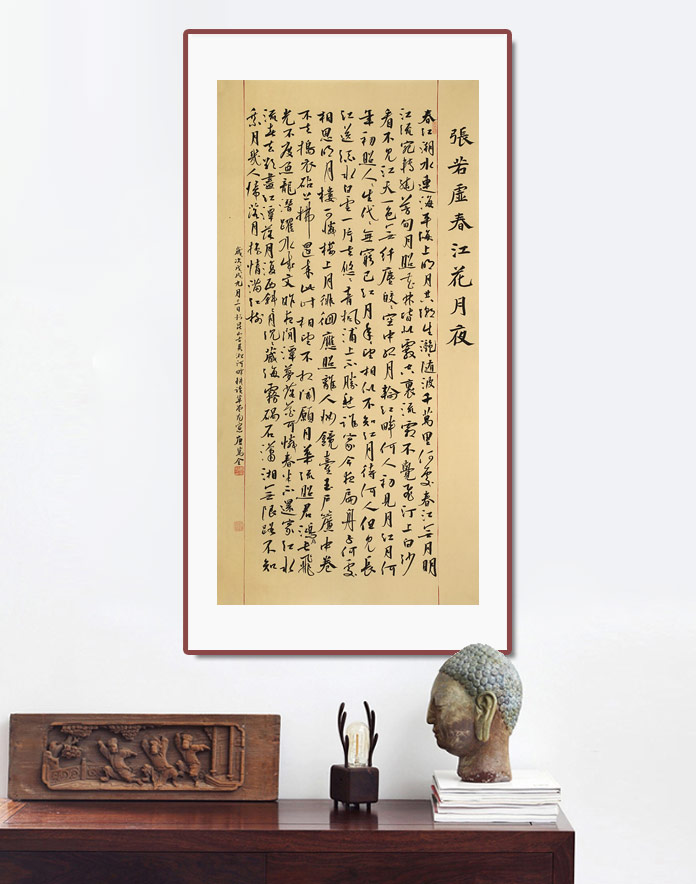 張若虛春江花月夜
春江潮水連海平海上明月共潮生灩灩隨波千萬里何處春江無月明
江流宛轉繞芳甸月照花林皆似霰空裏流霜不覺飛汀上白沙
看不見江天一色無纖塵皎皎空中孤月輪江畔何人初見月江月何
年初照人人生代代無窮已江月年年望相似不知江月待何人但見長
江送流水白雲一片去悠悠青楓浦上不勝愁誰家今夜扁舟子何處
相思明月樓可憐樓上月徘徊應照離人妝鏡臺玉戶簾中卷
不去搗衣砧上拂還來此時相望不相聞願月華流照君鴻雁長飛
光不度魚龍潛躍水成文昨夜閒潭夢落花可憐春半不還家江水
流春去欲盡江潭落月復西斜斜月沉沉藏海霧碣石瀟湘無限路不知
乘月幾人歸落月搖情滿江樹
歲次戊戌九月三日於昆山古吳淞河畔耕讀草